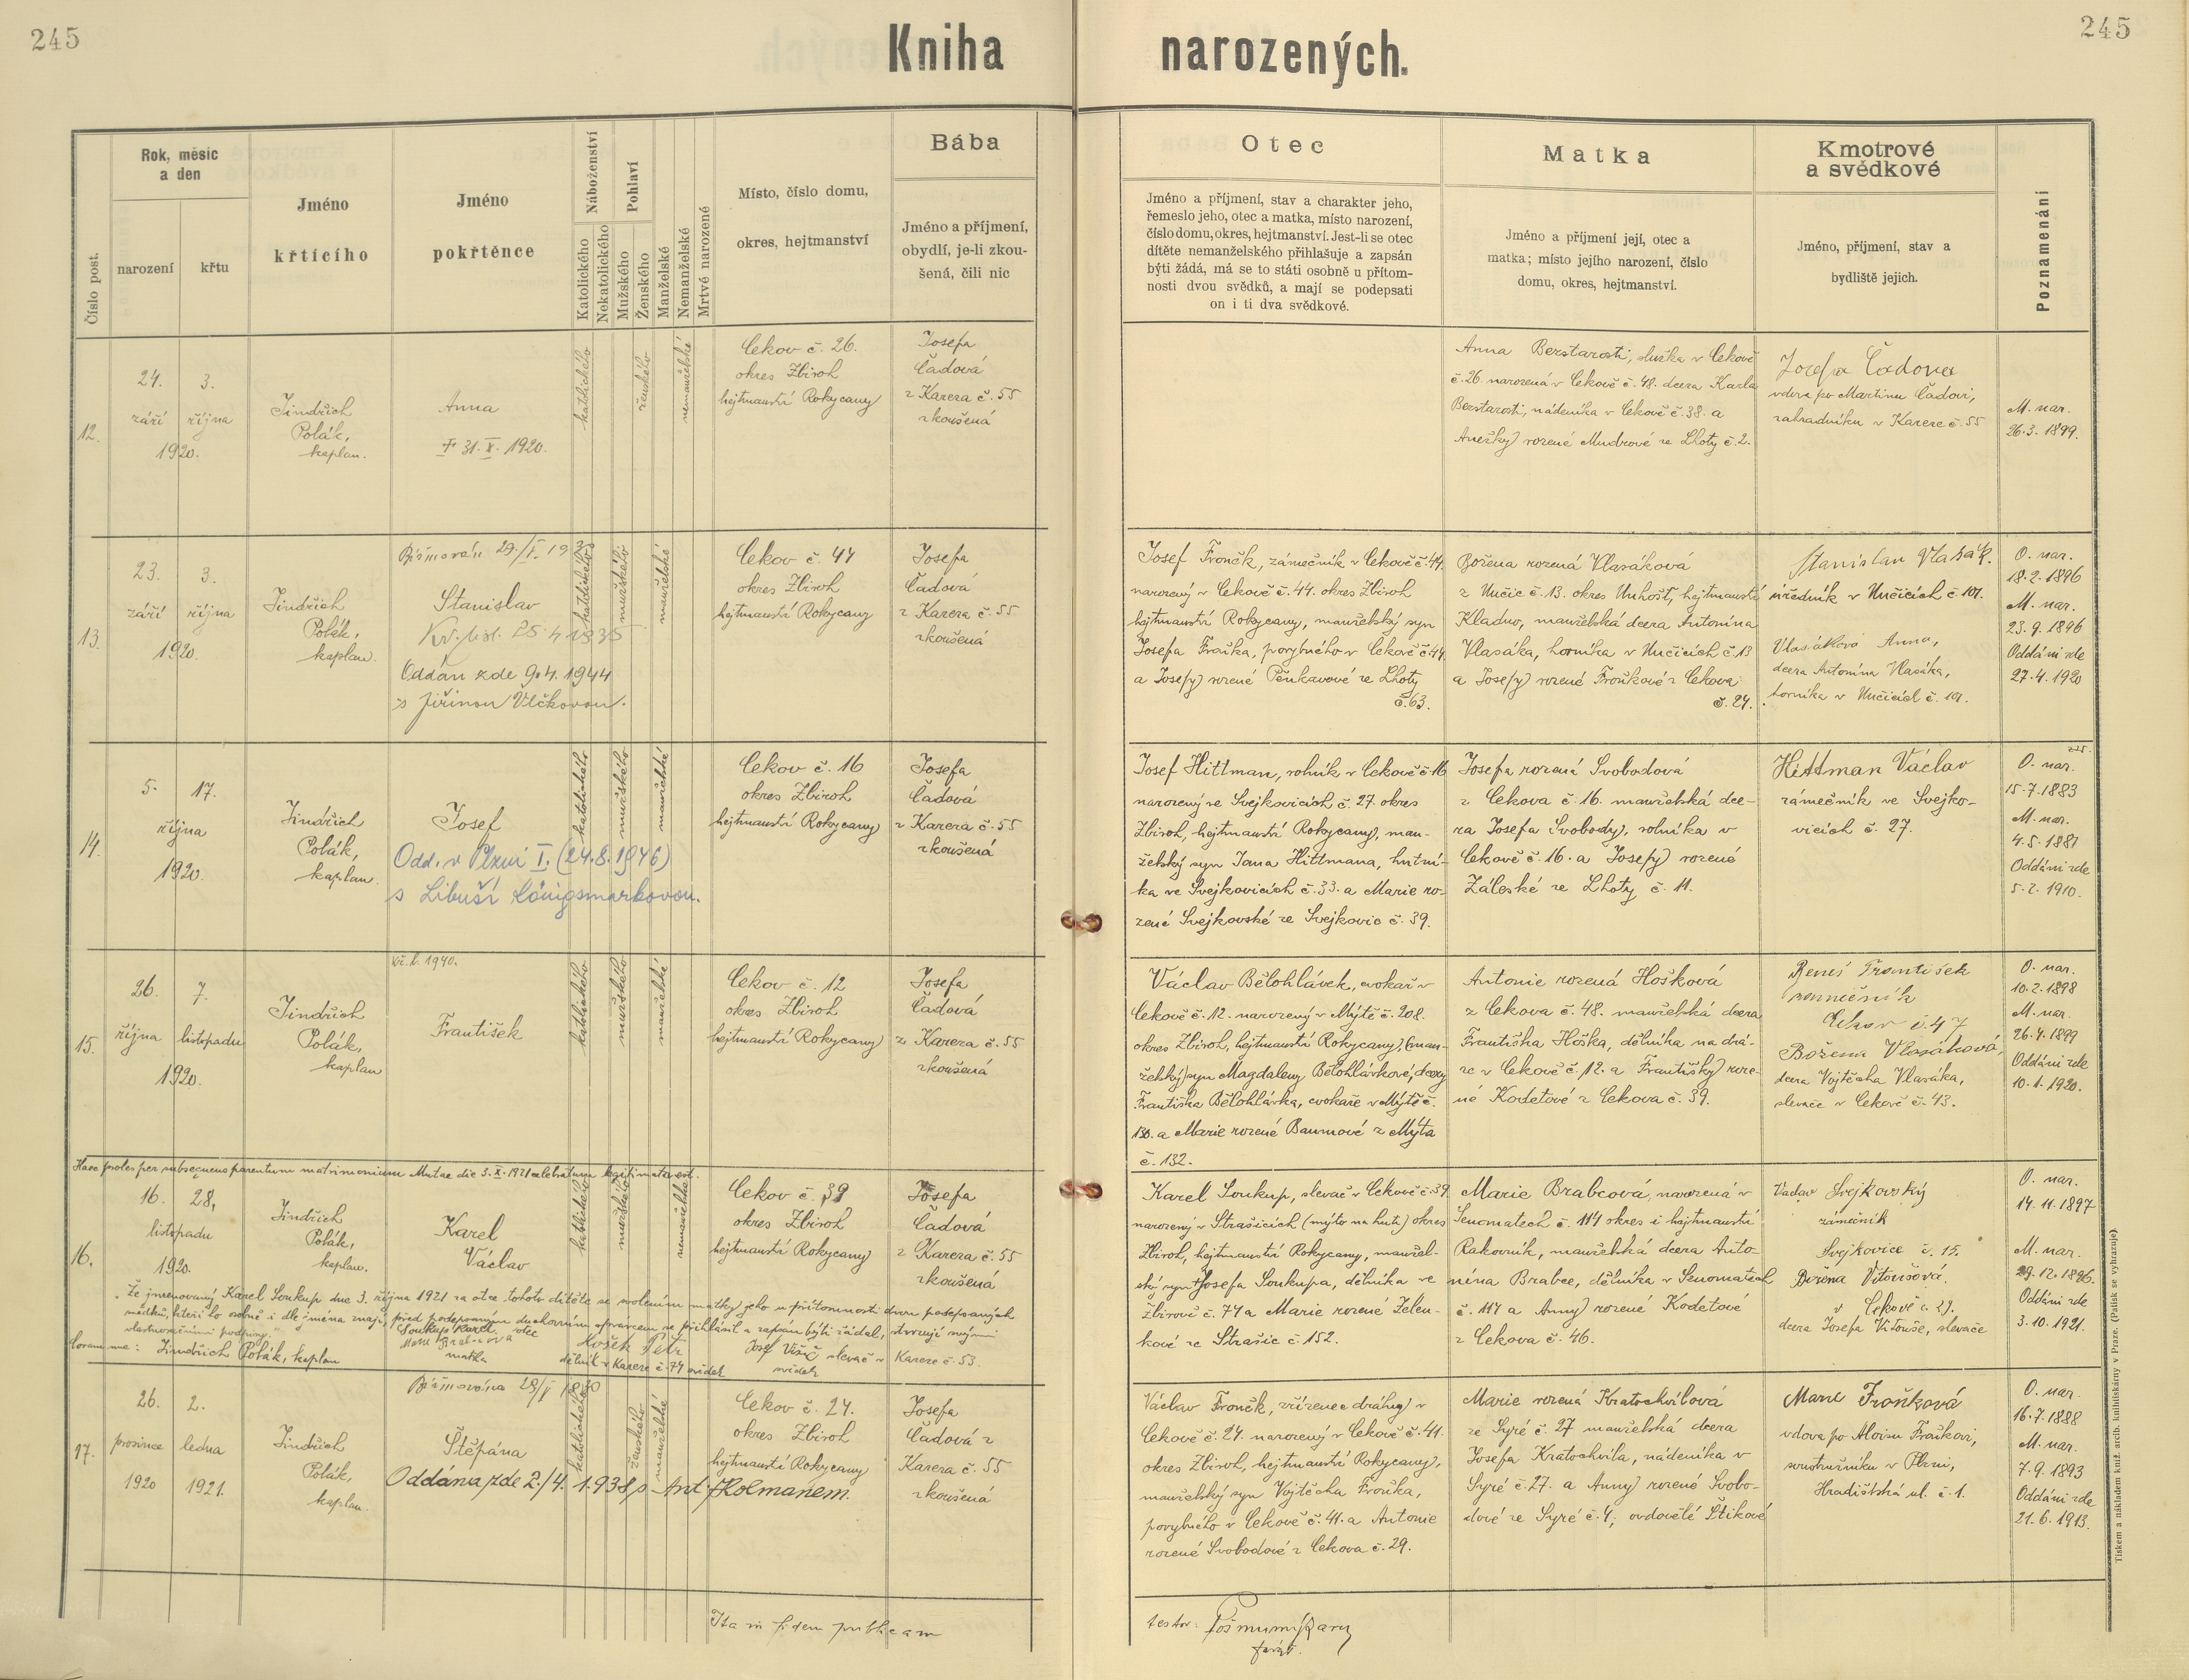 245
Kniha narozených.
245
Číslo post.
Rok, měsíc
a den
narození
křtu
Jméno
křtícího
Jméno
pokřtěnce
Náboženství
Katolického
Nekatolického
Pohlaví
Mužského
Ženského
Manželské
Nemanželské
Mrtvé narozené
Místo, číslo domu,
okres, hejtmanství
Bába
Jméno a příjmení,
obydlí, je-li zkou-
šená, čili nic
Otec
Jméno a příjmení, stav a charakter jeho,
řemeslo jeho, otec a matka, místo narození,
číslo domu, okres, hejtmanství. Jest-li se otec
dítěte nemanželského přihlašuje a zapsán
býti žádá, má se to státi osobně u přítom-
nosti dvou svědků, a mají se podepsati
on i ti dva svědkové.
Matka
Jméno a příjmení její, otec a
matka; místo jejího narození, číslo
domu, okres, hejtmanství.
Kmotrové
a svědkové
Jméno, příjmení, stav a
bydliště jejich.
Poznamenání
12.
24.
září
3.
října
1920.
Jindřich
Polák,
kaplan.
Anna
† 31. X. 1920.
katolického
ženského
nemanželské
Cekov č. 26.
okres Zbiroh
hejtmanství Rokycany
Josefa
Čadová
z Kareza č. 55
zkoušená
Anna Bezstarosti, služka v Cekově
č. 26. narozená v Cekově č. 48. dcera Karla
Bezstarosti, nádeníka v Cekově č. 38. a
Anežky rozené Mudrové ze Lhoty č. 2.
Josefa Čadova
vdova po Martinu Čadovi,
zahradníku v Kareze č. 55
M. nar.
26. 3. 1899.
13.
23.
září
3.
října
1920.
Jindřich
Polák,
kaplan.
Stanislav
Kř. list. 25. 4. 1935
Oddán zde 9. 4. 1944
s Jiřinou Vlčkovou.
katolického
mužského
manželské
Cekov č. 44
okres Zbiroh
hejtmanství Rokycany
Josefa
Čadová
z Kareza č. 55
zkoušená
Josef Froněk, zámečník v Cekově č. 44.
narozený v Cekově č. 44. okres Zbiroh
hejtmanství Rokycany, manželský syn
Josefa Froňka, porybného v Cekově č. 44.
a Josefy rozené Pěnkavové ze Lhoty
č. 63.
Božena rozená Vlasáková
z Nučic č. 13. okres Unhošť, hejtmanství
Kladno, manželská dcera Antonína
Vlasáka, horníka v Nučicích č. 13
a Josefy rozené Froňkové z Cekova
č. 24.
Stanislav Vlasák.
úředník v Nučicích č. 101.
Vlasáková Anna,
dcera Antonína Vlasáka,
horníka v Nučicích č. 101.
O. nar.
18. 2. 1896
M. nar.
23. 9. 1896
Oddáni zde
27. 4. 1920
14.
5.
17.
října
1920.
Jindřich
Polák,
kaplan.
Josef
Odd. v Plzni I. (24. 8. 1946)
s Libuší Königsmarkovou.
katolického
mužského
manželské
Cekov č. 16
okres Zbiroh
hejtmanství Rokycany
Josefa
Čadová
z Kareza č. 55
zkoušená
Josef Hittman, rolník v Cekově č. 16
narozený ve Svejkovicích č. 27. okres
Zbiroh, hejtmanství Rokycany, man-
želský syn Jana Hittmana, hutní-
ka ve Svejkovicích č. 33. a Marie ro-
zené Svejkovské ze Svejkovic č. 39.
Josefa rozená Svobodová
z Cekova č. 16. manželská dce-
ra Josefa Svobody, rolníka v
Cekově č. 16. a Josefy rozené
Záleské ze Lhoty č. 11.
Hittman Václav
zámečník ve Svejko-
vicích č. 27.
O. nar.
15. 7. 1883
M. nar.
4. 5. 1881
Oddáni zde
5. 2. 1910.
15.
26.
října
7.
listopadu
1920.
Jindřich
Polák,
kaplan
Kř. l. 1940.
František
katolického
mužského
manželské
Cekov č. 12
okres Zbiroh
hejtmanství Rokycany
Josefa
Čadová
z Kareza č. 55
zkoušená
Václav Bělohlávek, cvokař v
Cekově č. 12. narozený v Mýtě č. 208.
okres Zbiroh, hejtmanství Rokycany, (man-
želský) syn Magdaleny Bělohlávkové, dcery
Františka Bělohlávka, cvokaře v Mýtě č.
150. a Marie rozené Baumové z Mýta
č. 132.
Antonie rozená Hošková
z Cekova č. 48. manželská dcera
Františka Hoška, dělníka na drá-
ze v Cekově č. 12. a Františky roze-
né Kodetové z Cekova č. 39.
Beneš František
Cekov č. 47
Božena Vlasáková,
dcera Vojtěcha Vlasáka,
slevače v Cekově č. 43.
O. nar.
10. 2. 1898
M. nar.
26. 4. 1899
Oddáni zde
10. 1. 1920.
Haec proles per subsequens parentum matrimonium Mutae die 3. X. 1921 celebratum legitimata est.
16.
16.
28.
listopadu
1920.
Jindřich
Polák,
kaplan.
Karel
Václav
katolického
mužského
nemanželské
Cekov č. 39
okres Zbiroh
hejtmanství Rokycany
Josefa
Čadová
z Kareza č. 55
zkoušená
„Že jmenovaný Karel Soukup dne 3. října 1921 za otce tohoto dítěte se svolením matky jeho u přítomnosti dvou podepsaných
svědků, kteří ho osobně i dle jména znají, před podepsaným duchovním správcem se přihlásil a zapsán býti žádal, stvrzují svými
vlastnoručními podpisy."
Soukup Karel otec
matka
Coram me: Jindřich Polák, kaplan
Košek Petr
dělník v Kareze č. 74 svědek
Josef slevač v Kareze č. 53.
svědek
Karel Soukup, slevač v Cekově č. 39
narozený v Strašicích (mýto na huti) okres
Zbiroh, hejtmanství Rokycany, manžel-
ský syn Josefa Soukupa, dělníka ve
Zbirově č. 74 a Marie rozené Zelen-
kové ze Strašic č. 152.
Marie Brabcová, narozená v
Senomatech č. 114 okres i hejtmanství
Rakovník, manželská dcera Anto-
nína Brabce, dělníka v Senomatech
č. 114 a Anny rozené Kodetové
z Cekova č. 46.
Vaclav Svejkovský
zámečník
Svejkovice č. 15.
Božena Vitoušová.
v Cekově č. 29.
dcera Josefa Vitouše, slevače
O. nar.
14. 11. 1897
M. nar.
29. 12. 1896.
Oddáni zde
3. 10. 1921.
17.
26.
prosince
1920
2.
ledna
1921.
Jindřich
Polák,
kaplan.
Štěpána
Oddána zde 2./4. 1938 s Ant. Holmanem.
katolického
ženského
manželské
Cekov č. 24.
okres Zbiroh
hejtmanství Rokycany
Josefa
Čadová z
Kareza č. 55
zkoušená
Václav Froněk, zřízenec dráhy v
Cekově č. 24. narozený v Cekově č. 41.
okres Zbiroh, hejtmanství Rokycany,
manželský syn Vojtěcha Froňka,
porybného v Cekově č. 41. a Antonie
rozené Svobodové z Cekova č. 29.
Marie rozená Kratochvílová
ze Syré č. 27 manželská dcera
Josefa Kratochvíla, nádeníka v
Syré č. 27. a Anny rozené Svobo-
dové ze Syré č. 4, ovdovělé Štikové
Marie Froňková
vdova po Aloisu Froňkovi,
soustružníku v Plzni,
Hradišťská ul. č. 1.
O. nar.
16. 7. 1888
M. nar.
7. 9. 1893
Oddáni zde
21. 6. 1913.
Ita in fidem publicam
testor:
farář.
Tiskem a nákladem kníž. arcib. knihtiskárny v Praze. (Patisk se vyhrazuje).